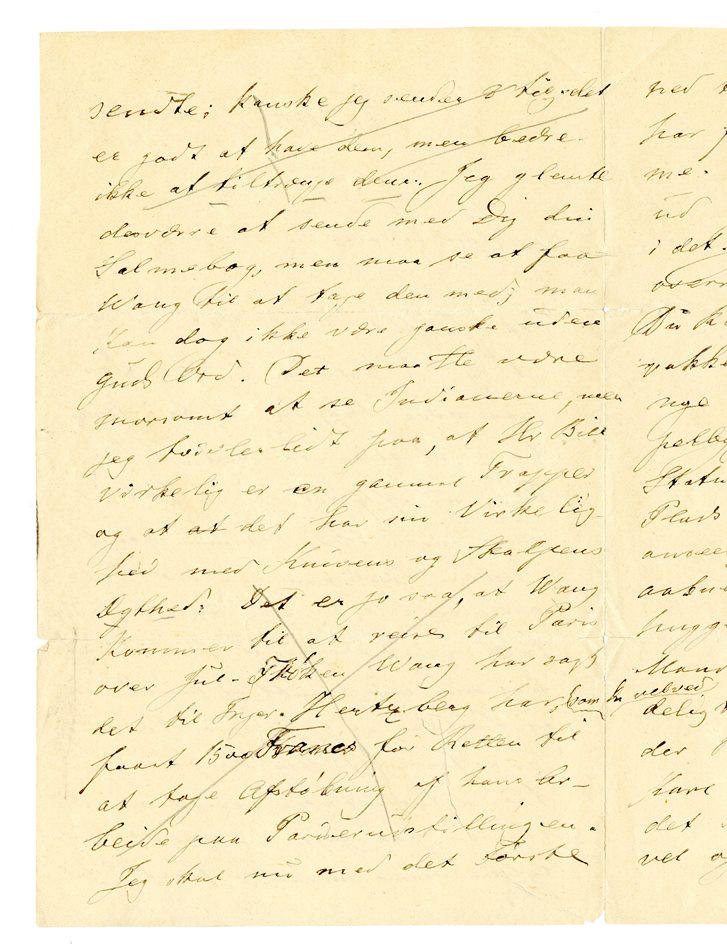 sendte; kanske jeg sender Dig det
er godt at have dem, men bedre
ikke at tiltrænge dem. Jeg glemte
desværre at sende med Dig din
Salmebog, men maa se at faa
Wang til at tage den med; man
kan dog ikke være ganske uden
Guds Ord. Det maatte være
morsomt at se Indianerne, men
jeg tvivler lidt paa, at Hr Bill
virkelig er en gammel Trapper
og at at det har sin Virkelig-
hed med Knivens og Skalpens
Ægthed. Det er jo saa, at Wang
kommer til at reise til Paris
over Jul - Frøken Wang har sagt
det til Inger. Hertzberg har, som Du velved
faaet 1500 Francs for Retten til
at tage Afstøbning af hans Ar-
beide paa Pariserudstillingen.
Jeg skal nu med det Første
ned
har
me.
ud
i det
Du k
pakke
nge
Statu
Plads
aabne
hugg
delig
der
Kare
det
vel og